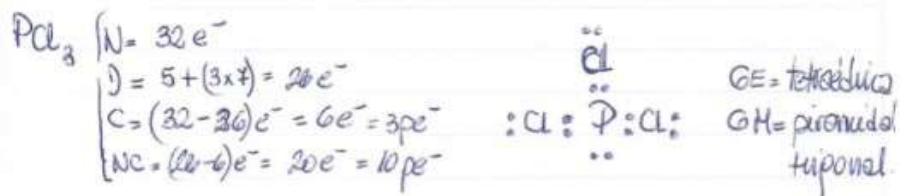 PCl₃ N = 32 e⁻
D = 5 + (3x7) = 26 e⁻
C = (32 - 26) e⁻ = 6e⁻ = 3pe⁻
NC = (26-6)e⁻ = 20e⁻ = 10 pe⁻
Cl
:Cl : P : Cl:
GE = tetraédrica
GM = piramidal
trigonal.